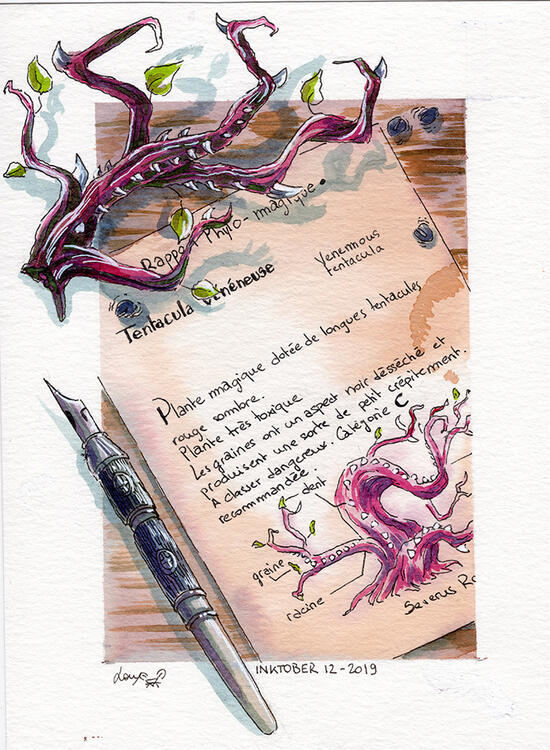 Rappo Phyto-magique.
Tentacula vénéneuse
Venemous
tentacula
Plante magique dotée de longues tentacules
rouge sombre.
Plante très toxique
Les graines ont un aspect noir désséché et
produisent une sorte de petit crépitement.
A classer dangereux. Catégorie C
recommmandée.
dent
graine
racine
Severus Ro
INKTOBER 12-2019